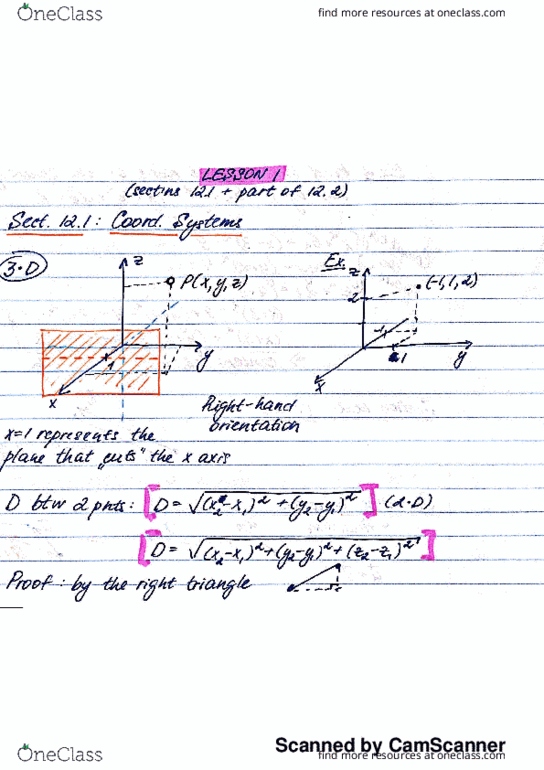 OneClass
find more resources at oneclass.com
LESSON 1
(sectins 12.1 + part of 12.2)
Sect. 12.1: Coord. Systems
3-D
z
P(x, y, z)
y
1
x
Ex.
z
2
(-1, 1, 2)
-1
1
y
x
Right-hand
orientation
x=1 represents the
plane that „cuts" the x axis
D btw 2 pnts: [D = √(x₂-x₁)² + (y₂-y₁)²] (2-D)
[D = √(x₂-x₁)² + (y₂-y₁)² + (z₂-z₁)²]
Proof: by the right triangle
Scanned by CamScanner
OneClass
find more resources at oneclass.com